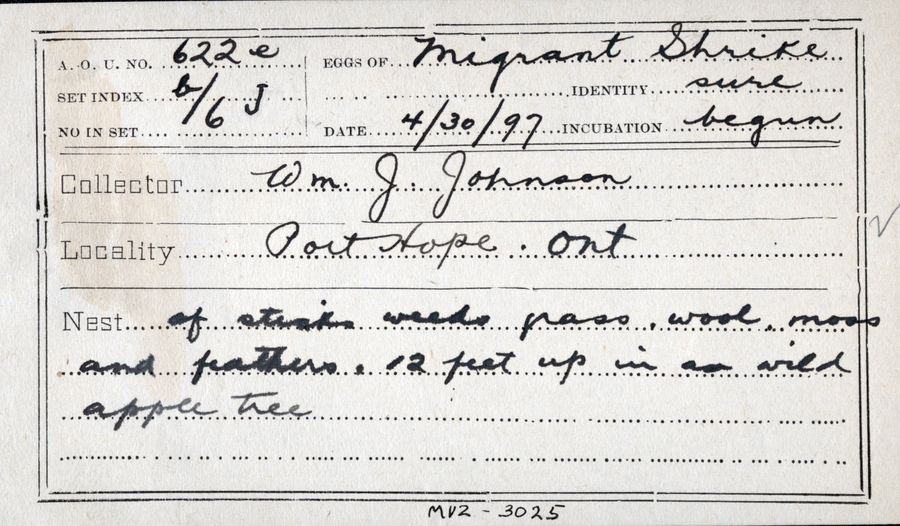 A. O. U. NO. 622e EGGS OF Migrant Shrike
SET INDEX b/6 J IDENTITY sure
NO IN SET DATE 4/30/97 INCUBATION begun
Collector Wm. J. Johnson
Locality Port Hope. Ont
Nest of sticks weeds grass, wool, moss
and feathers. 12 feet up in a wild
apple tree
MVZ - 3025